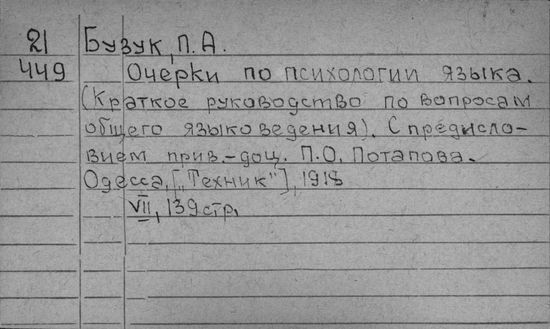 21 Бузук, П.А.
449 Очерки по психологии языка.
(Краткое руководство по вопросам
общего языковедения). С предисло-
вием прив.-доц. П.О. Потапова.
Одесса, ["Техник"], 1918
VII, 139 стр.